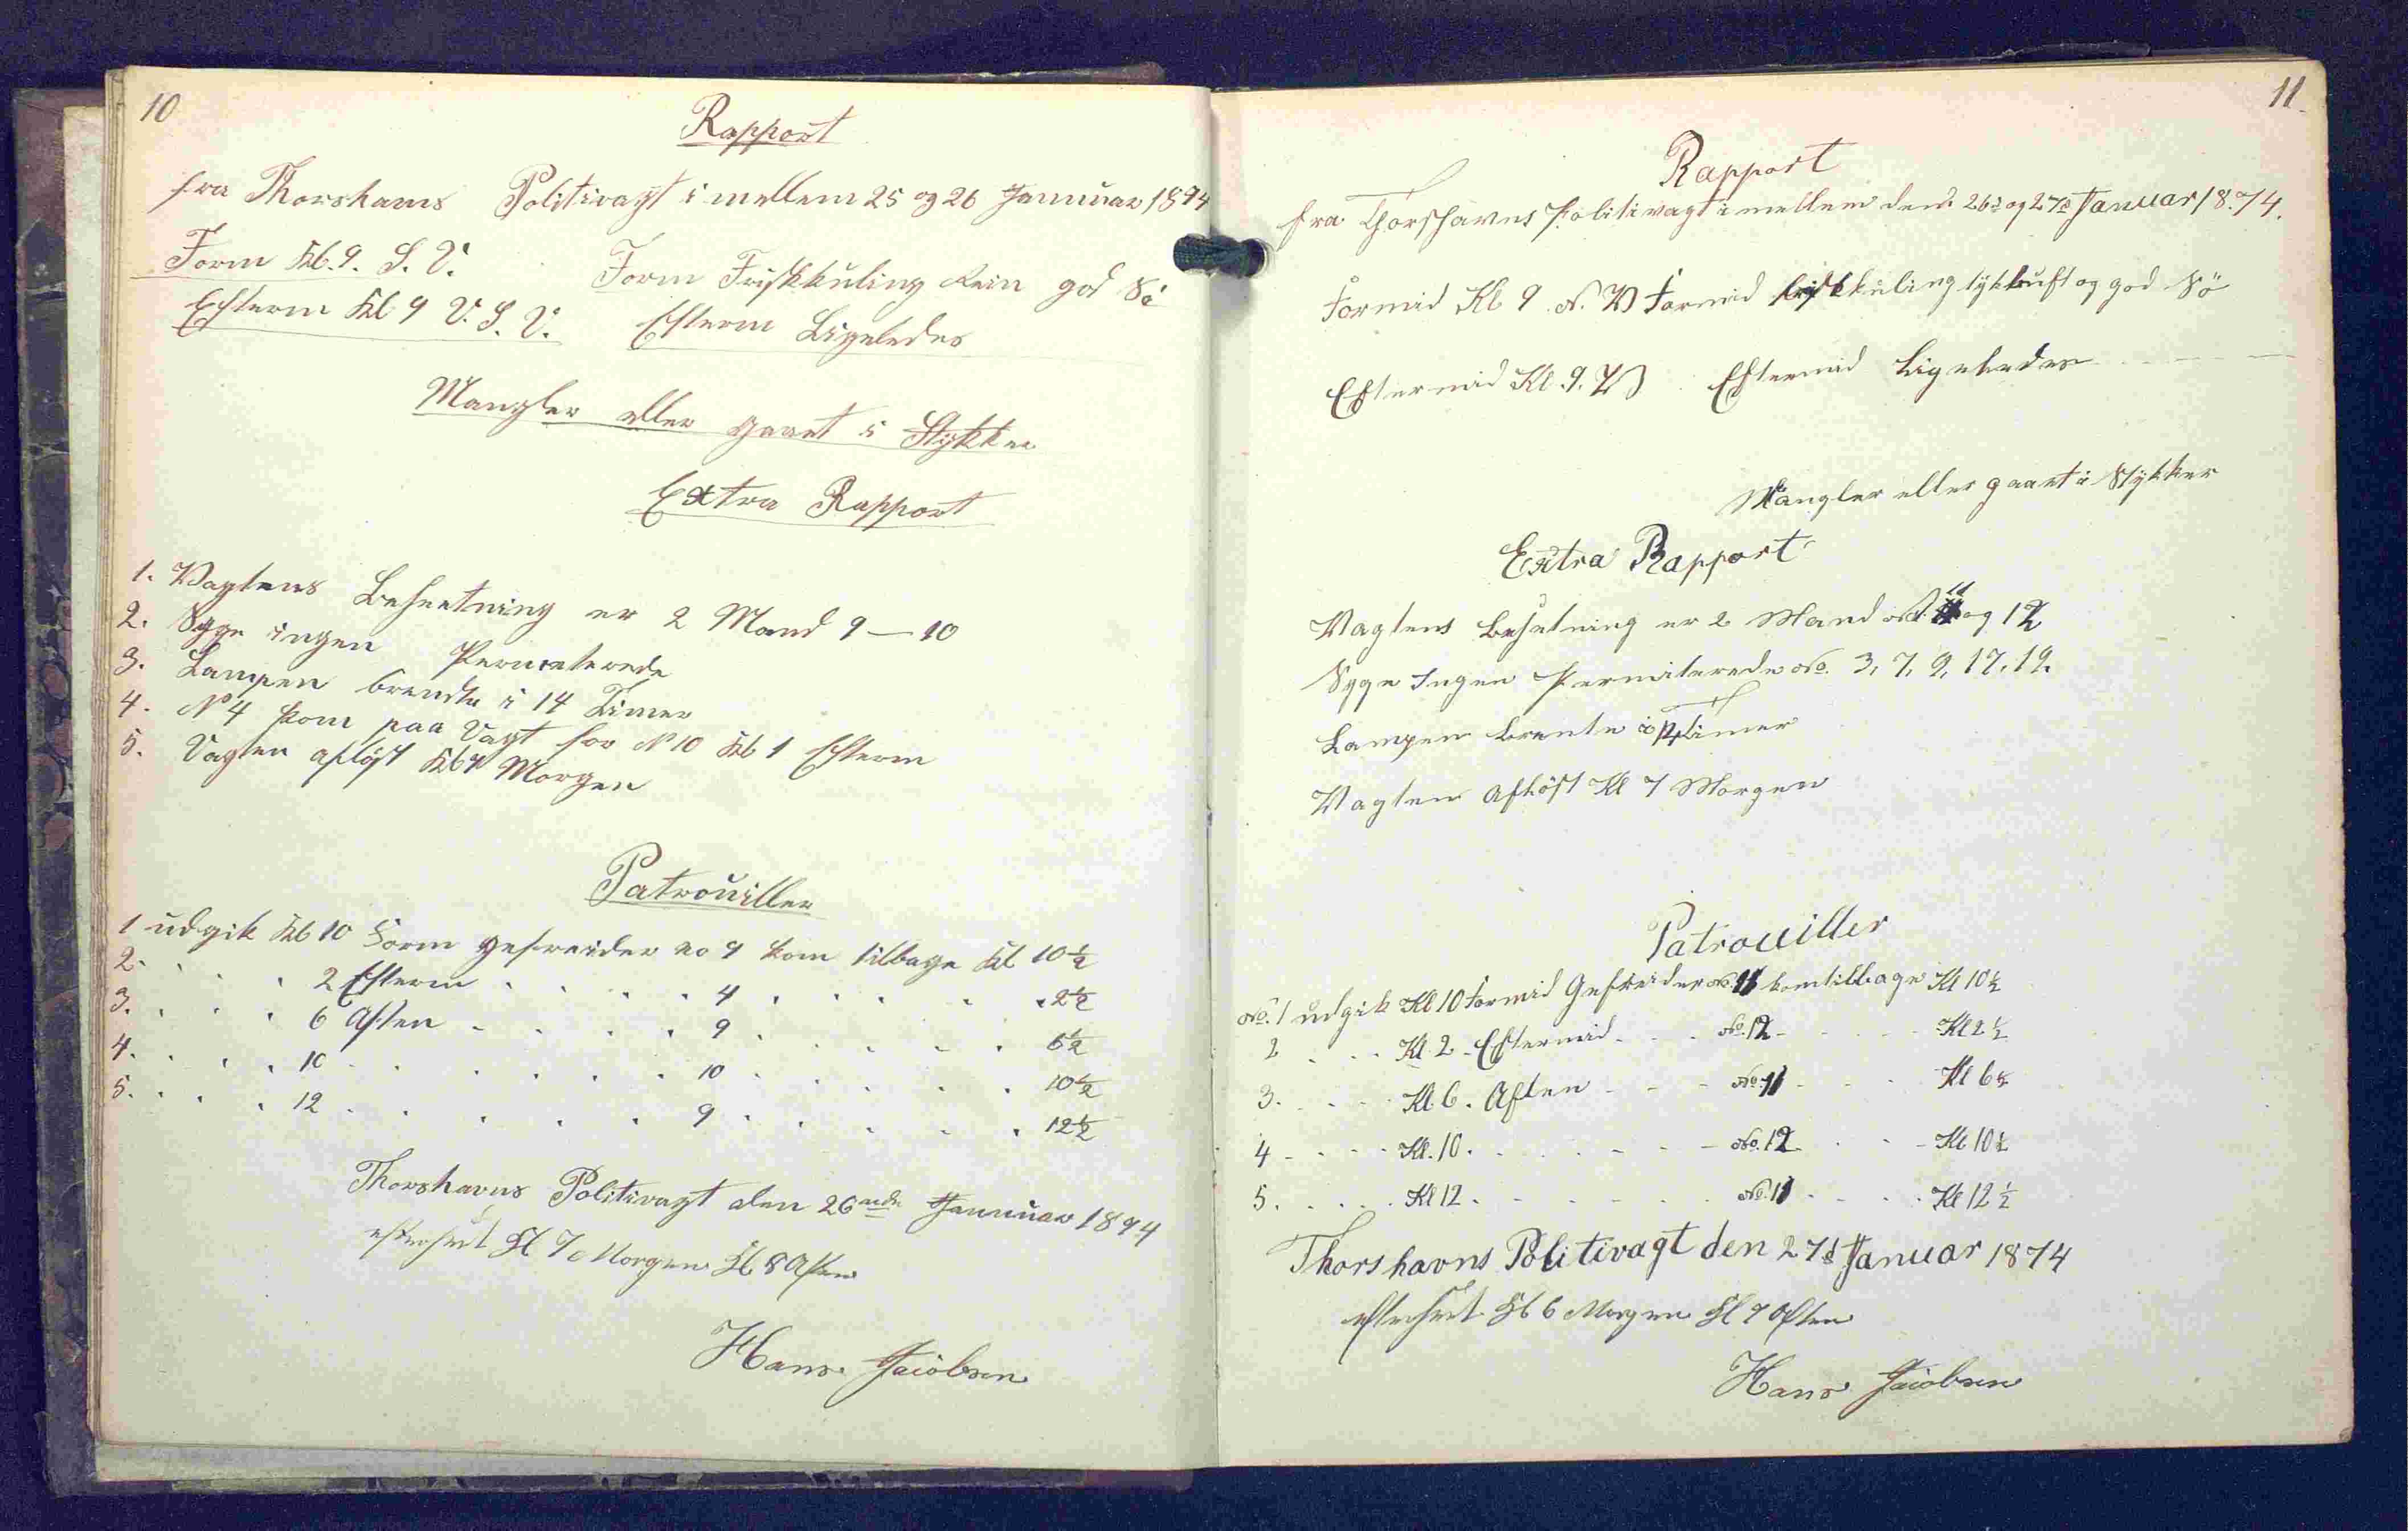 10
Rapport
fra Thorshavns Politivagt i mellem 25 og 26 Januar 1874
Form Kl. 9. S. V. Form Friskkuling Rein god Sö
Efterm Kl 9 V. S. V. Efterm Ligeledes
Mangler eller gaaet i Stykker
Extra Rapport
1. Vagtens Besætning er 2 Mand 9 — 10
2. Syge ingen Permiterede
3. Lampen brendte i 14 Timer
4. N 4 kom paa Vagt for N 10 Kl 1 Efterm
5. Vagten aflöst Kl 7 Morgen
Patrouiller
1 udgik Kl 10 Form gefreider no 9 kom tilbage Kl 10½
2. . . . 2 Efterm . . . . 4 . . . . . 2½
3. . . . 6 Aften . . . . 9 . . . . . 6½
4. . . . 10 . . . . . . 10 . . . . . 10½
5. . . . 12 . . . . . . 9 . . . . . 12½
Thorshavns Politivagt den 26nde Januar 1874
efterseet Kl 7 Morgen Kl. 8 Aften
Hans Jacobsen
11
Rapport
fra Thorshavns Politivagt i mellem den 26d og 27d Januar 1874.
Formid Kl 9 N. V Formid friskkuling tykluft og god Sö
Eftermid Kl. 9. V Eftermid Ligeledes
Mangler eller gaaet i Stykker
Extra Rapport
Vagtens Besetning er 2 Mand No 11 og 12
Syge Ingen Permiterede No. 3, 7, 9, 17, 19.
Lampen brente i 14 Timer
Vagten Aflöst Kl 7 Morgen
Patrouiller
No. 1 udgik Kl 10 formid Gefreider No 11 kom tilbage Kl 10½
2 . . . Kl. 2 Eftermid . . . No. 12 . . . Kl 2½
3. . . . Kl. 6. Aften - - - No. 11 . . . Kl 6½
4 - . . . Kl. 10. . . . . - - - No. 12 . . - Kl. 10½
5. . . . . Kl 12 . - . . . . No. 11 . . . . Kl 12½
Thorshavns Politivagt den 27d Januar 1874
efterseet Kl 6 Morgen Kl 7 Aften
Hans Jacobsen